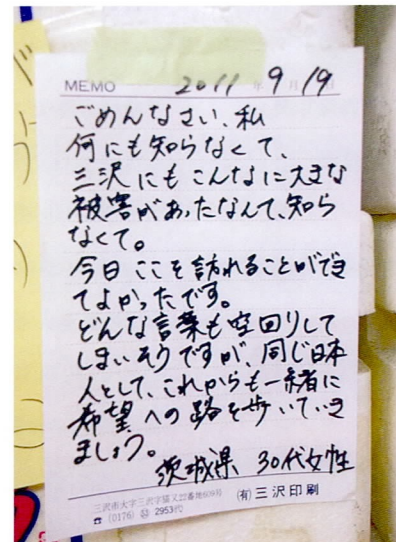 MEMO 2011年9月19日
ごめんなさい、私
何にも知らなくて、
三沢にもこんなに大きな
被害があったなんて、知ら
なくて。
今日ここを訪れることができ
てよかったです。
どんな言葉も空回りして
しまいそうですが、同じ日本
人として、これからも一緒に
希望への路を歩いていき
ましょう。
茨城県 30代女性
(有)三沢印刷
☎(0176) 2953代